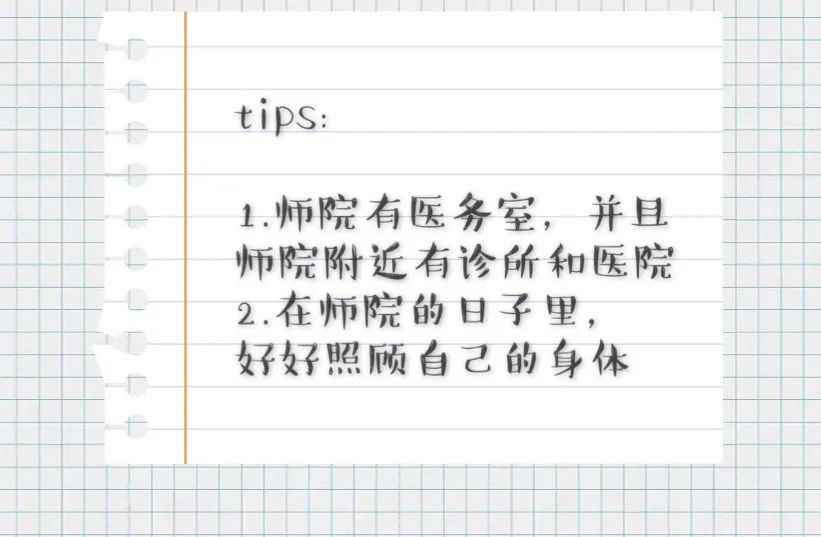 tips:
1.师院有医务室，并且
师院附近有诊所和医院
2.在师院的日子里，
好好照顾自己的身体